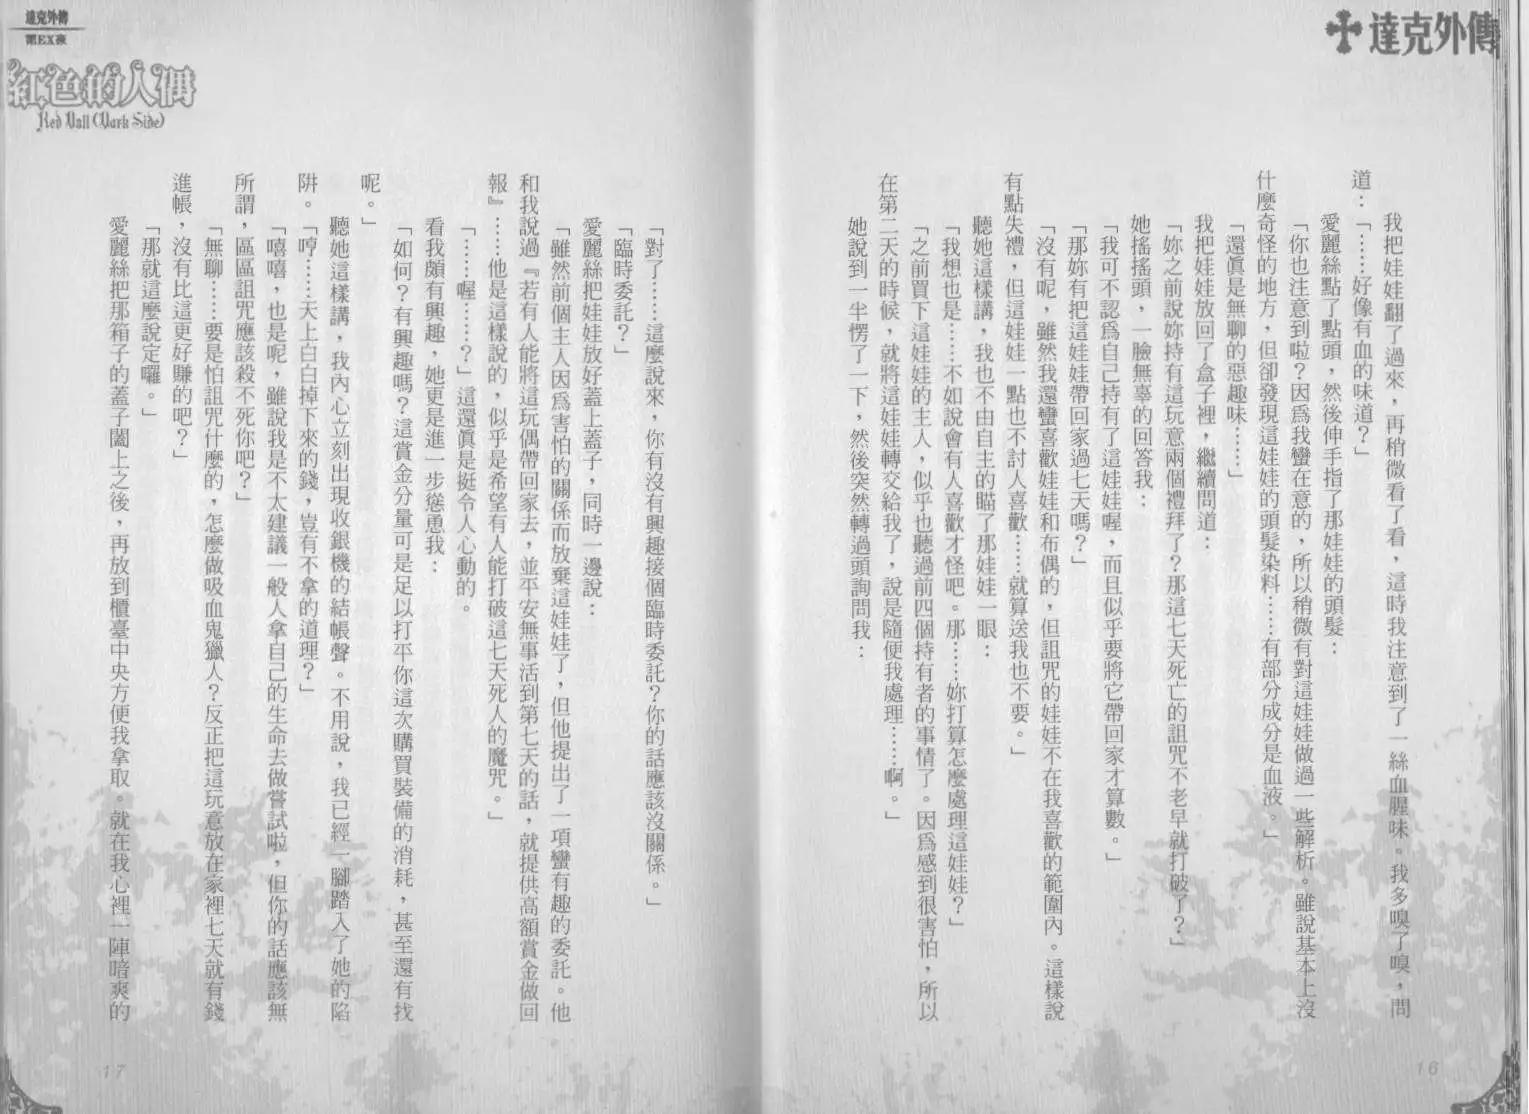 達克外傳
我把娃娃翻了過來，再稍微看了看，這時我注意到了一絲血腥味。我多嗅了嗅，問
道：「……好像有血的味道？」
愛麗絲點了點頭，然後伸手指了那娃娃的頭髮：
「你也注意到啦？因為我蠻在意的，所以稍微有對這娃娃做過一些解析。雖說基本上沒
什麼奇怪的地方，但卻發現這娃娃的頭髮染料……有部分成分是血液。」
「還真是無聊的惡趣味……」
我把娃娃放回了盒子裡，繼續問道：
「妳之前說妳持有這玩意兩個禮拜了？那這七天死亡的詛咒不老早就打破了？」
她搖搖頭，一臉無辜的回答我：
「我可不認為自己持有了這娃娃喔，而且似乎要將它帶回家才算數。」
「那妳有把這娃娃帶回家過七天嗎？」
「沒有呢，雖然我還蠻喜歡娃娃和布偶的，但詛咒的娃娃不在我喜歡的範圍內。這樣說
有點失禮，但這娃娃一點也不討人喜歡……就算送我也不要。」
聽她這樣講，我也不由自主的瞄了那娃娃一眼：
「我想也是……不如說會有人喜歡才怪吧。那……妳打算怎麼處理這娃娃？」
「之前買下這娃娃的主人，似乎也聽過前四個持有者的事情了。因為感到很害怕，所以
在第二天的時候，就將這娃娃轉交給我了，說是隨便我處理……啊。」
她說到一半愣了一下，然後突然轉過頭詢問我：
16
達克外傳
第EX夜
紅色的人偶
Red Doll (Dark Side)
「對了……這麼說來，你有沒有興趣接個臨時委託？你的話應該沒關係。」
「臨時委託？」
愛麗絲把娃娃放好蓋上蓋子，同時一邊說：
「雖然前個主人因為害怕的關係而放棄這娃娃了，但他提出了一項蠻有趣的委託。他
和我說過『若有人能將這玩偶帶回家去，並平安無事活到第七天的話，就提供高額賞金做回
報』……他是這樣說的，似乎是希望有人能打破這七天死人的魔咒。」
「……喔……？」這還真是挺令人心動的。
看我頗有興趣，她更是進一步慫恿我：
「如何？有興趣嗎？這賞金分量可是足以打平你這次購買裝備的消耗，甚至還有找
呢。」
聽她這樣講，我內心立刻出現收銀機的結帳聲。不用說，我已經一腳踏入了她的陷
阱。
「哼……天上白白掉下來的錢，豈有不拿的道理？」
「嘻嘻，也是呢，雖說我是不太建議一般人拿自己的生命去做嘗試啦，但你的話應該無
所謂，區區詛咒應該殺不死你吧？」
「無聊……要是怕詛咒什麼的，怎麼做吸血鬼獵人？反正把這玩意放在家裡七天就有錢
進帳，沒有比這更好賺的吧？」
「那就這麼說定囉。」
愛麗絲把那箱子的蓋子闔上之後，再放到櫃臺中央方便我拿取。就在我心裡一陣暗爽的
17